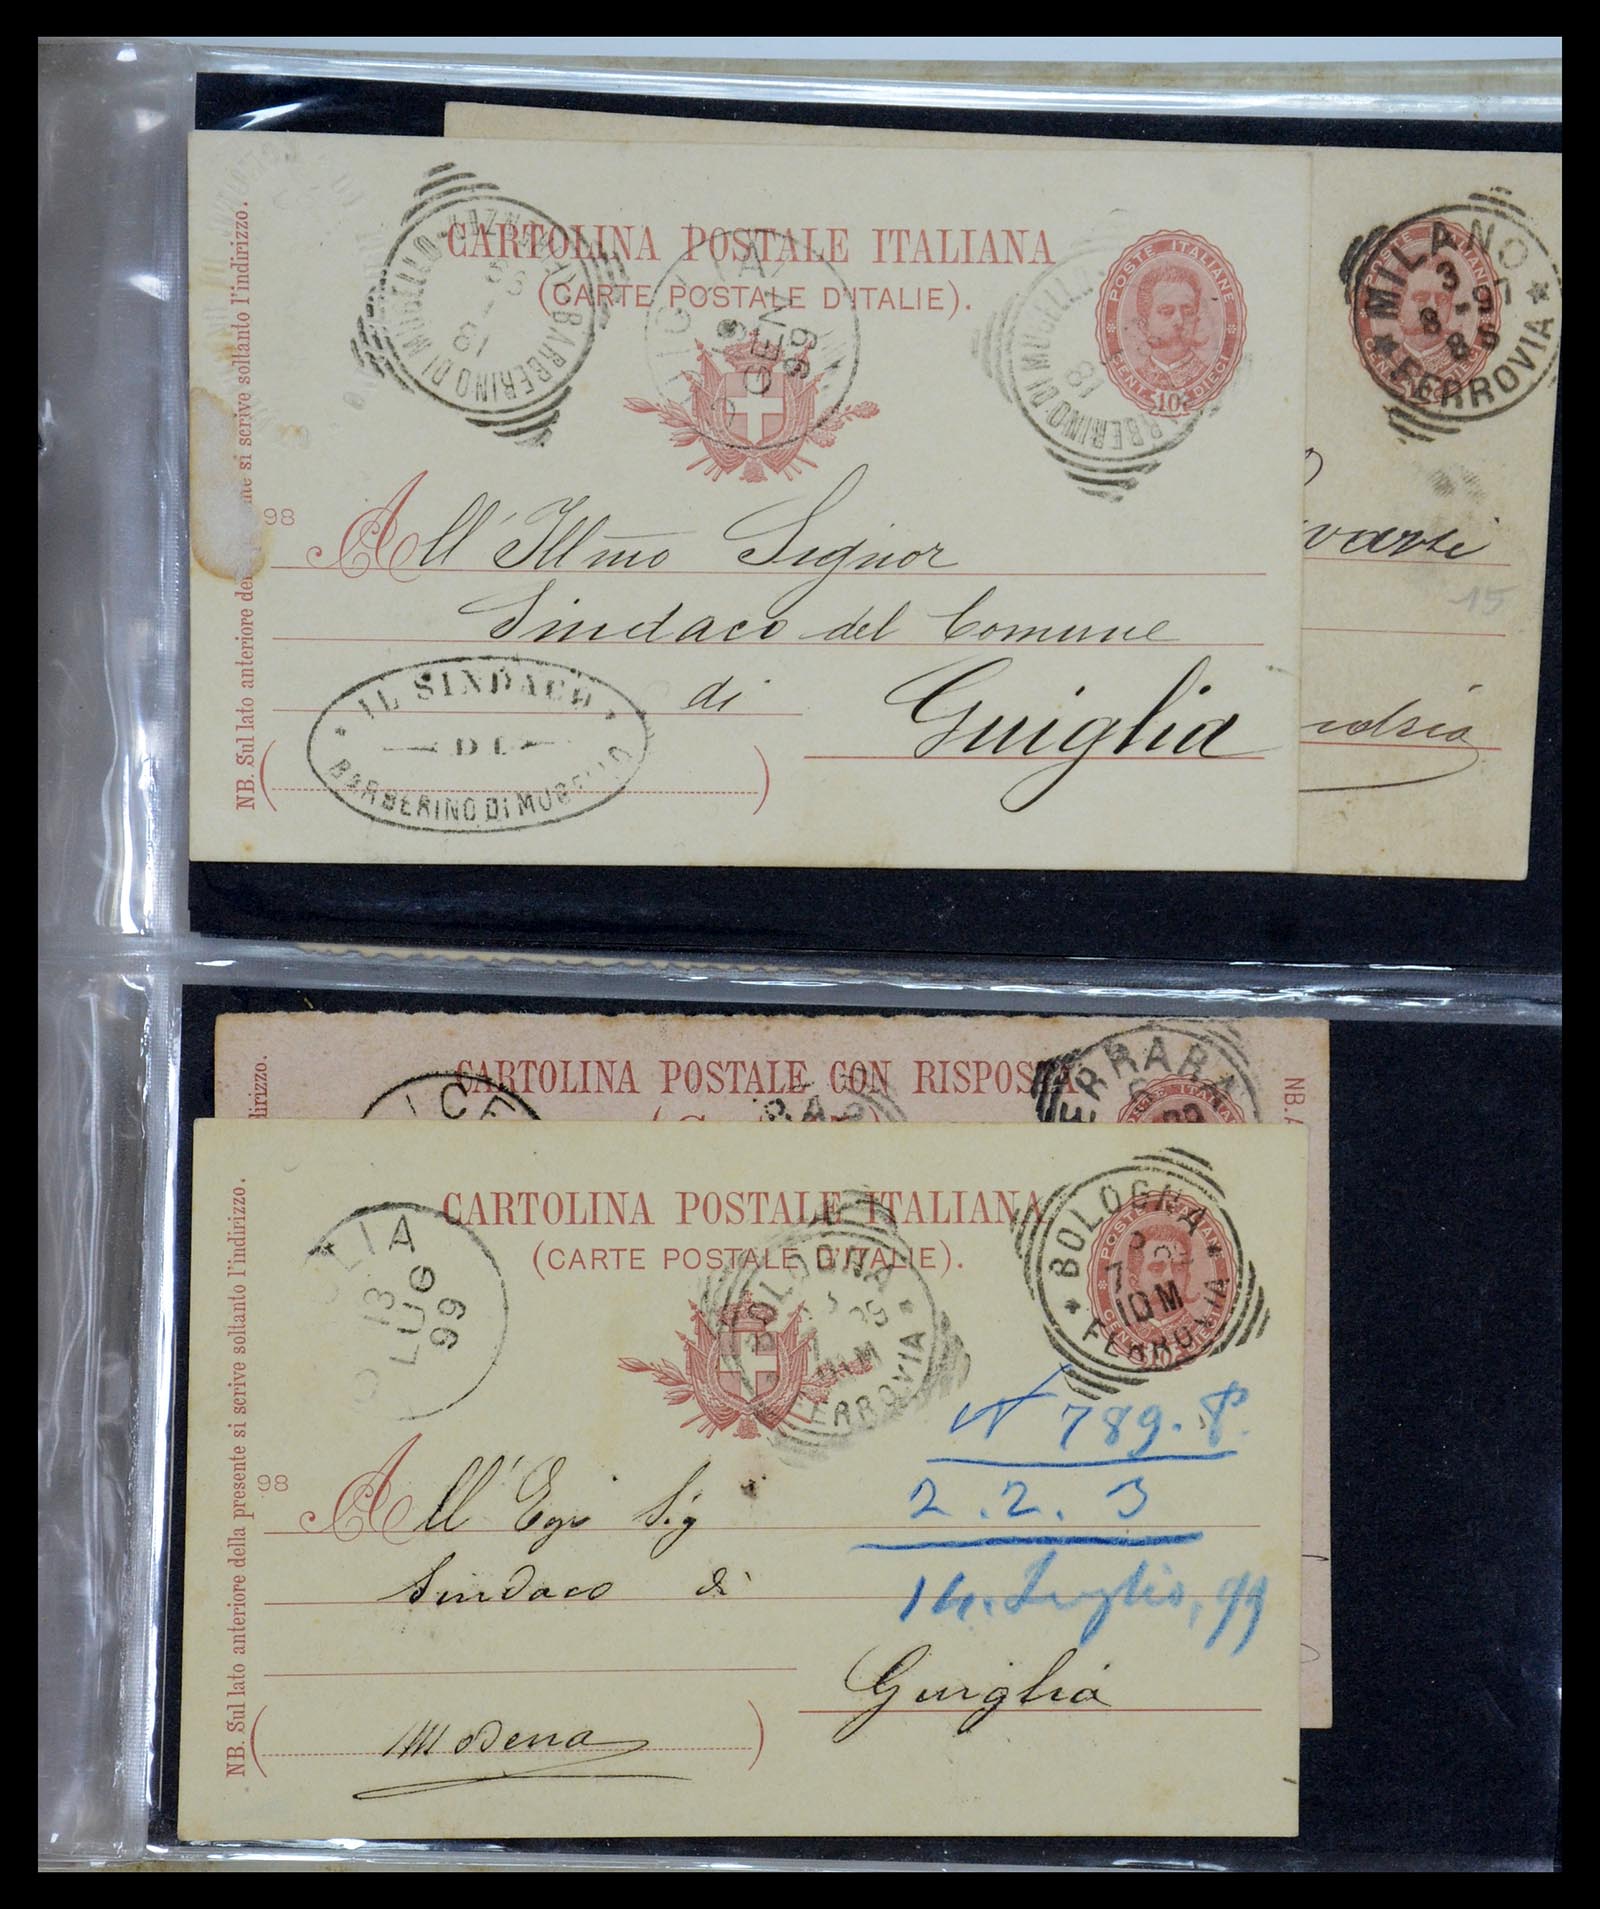 CARTOLINA POSTALE ITALIANA
(CARTE POSTALE D'ITALIE).
POSTE ITALIANE
CENT. 10 DIECI
BARBERINO DI MUGELLO
18
BARBERINO DI MUGELLO
18
GEN
99
98
All' Illmo Signor
Sindaco del Comune
di Guiglia
IL SINDACO
DI
BARBERINO DI MUGELLO
NB. Sul lato anteriore
si scrive soltanto l'indirizzo.
MILANO
FERROVIA
15
CARTOLINA POSTALE CON RISPOSTA
FERRARA
NB.
dirizzo.
CARTOLINA POSTALE ITALIANA
(CARTE POSTALE D'ITALIE).
POSTE ITALIANE
BOLOGNA
10M
FERROVIA
BOLOGNA
FERROVIA
LIA
13
LUG
99
N 789. P.
2. 2. 3
14. Luglio, 99
98
All' Sig
Sindaco di
Guiglia
(Modena)
NB. Sul lato anteriore della presente si scrive soltanto l'indirizzo.